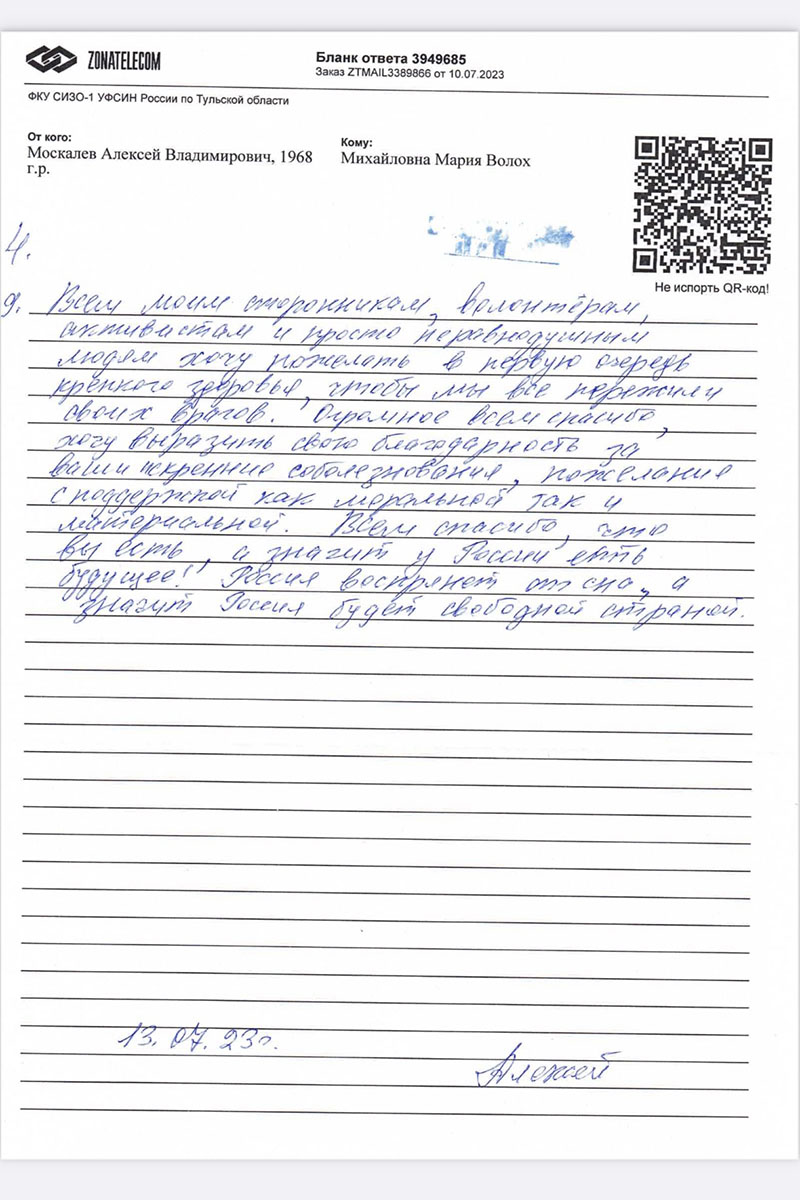 ZONATELECOM
Бланк ответа 3949685
Заказ ZTMAIL3389866 от 10.07.2023
ФКУ СИЗО-1 УФСИН России по Тульской области
От кого:
Москалев Алексей Владимирович, 1968
г.р.
Кому:
Михайловна Мария Волох
Не испорть QR-код!
4.
9. Всем моим сторонникам, волонтёрам,
активистам и просто неравнодушным
людям хочу пожелать в первую очередь
крепкого здоровья, чтобы мы все пережили
своих врагов. Огромное всем спасибо,
хочу выразить свою благодарность за
ваши искренние соболезнования, пожелания
с поддержкой как моральной так и
материальной. Всем спасибо, что
вы есть, а значит у России есть
будущее! Россия воспрянет от сна, а
значит Россия будет свободной страной.
13.07.23г.
Алексей